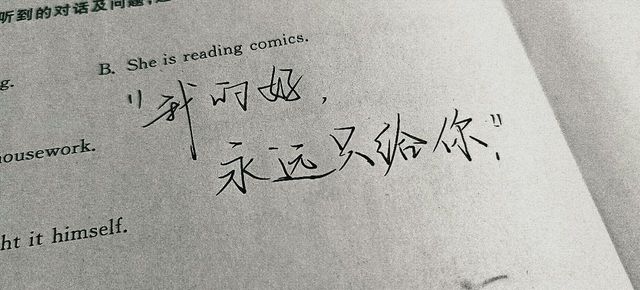 听到的对话及问题,
B. She is reading comics.
g.
"我的好,
ousework.
永远只给你"。
ht it himself.